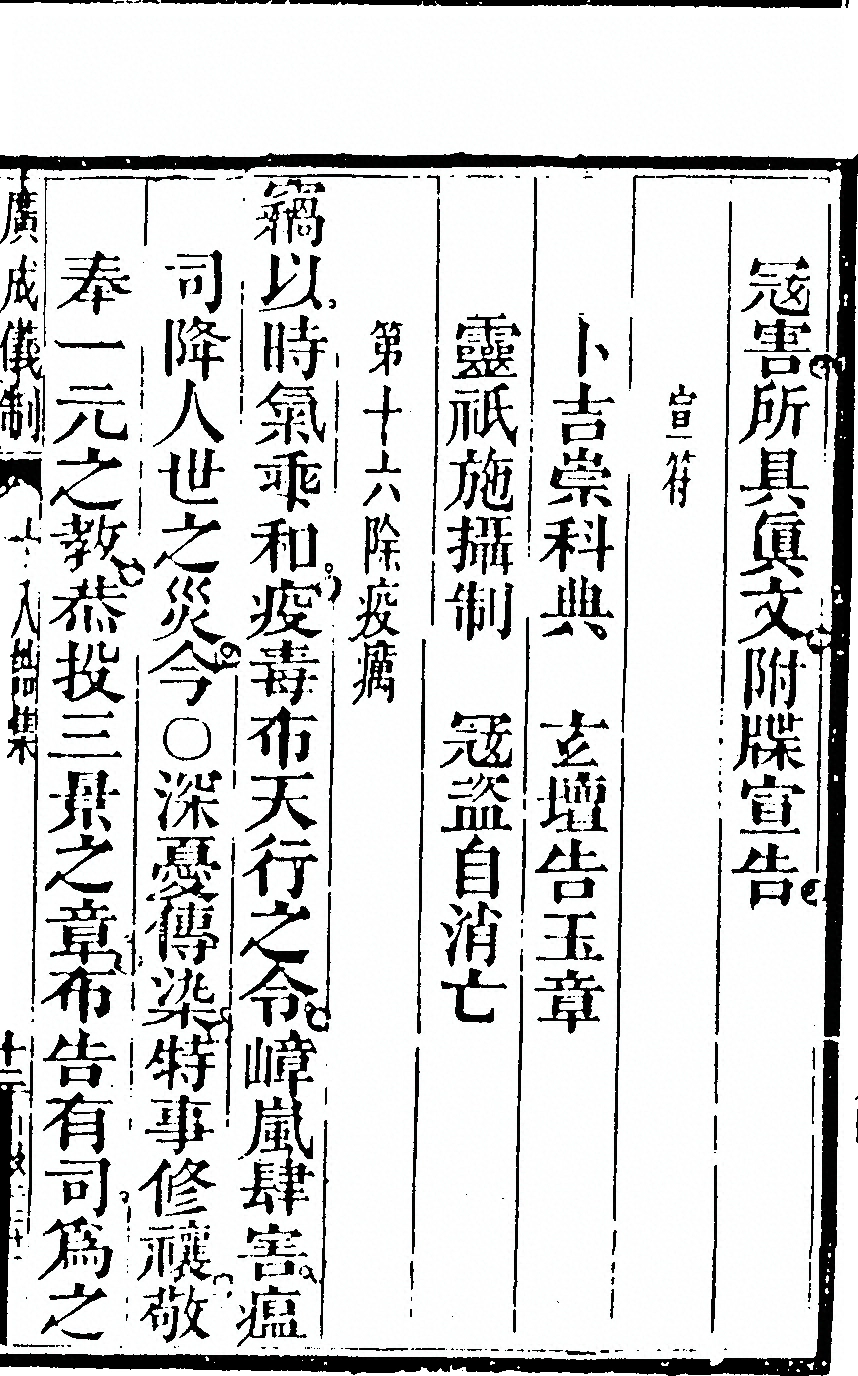 冦害所具眞文附牒宣告
宣符
卜吉崇科典　玄壇告玉章
靈祇施攝制　冦盜自消亡
第十六除疫癘
竊以時氣乖和疫毒布天行之令嶂嵐肆害瘟
司降人世之災今〇深憂傳染特事修禳敬
奉一元之教恭投三景之章布告有司爲之
廣成儀制
十二